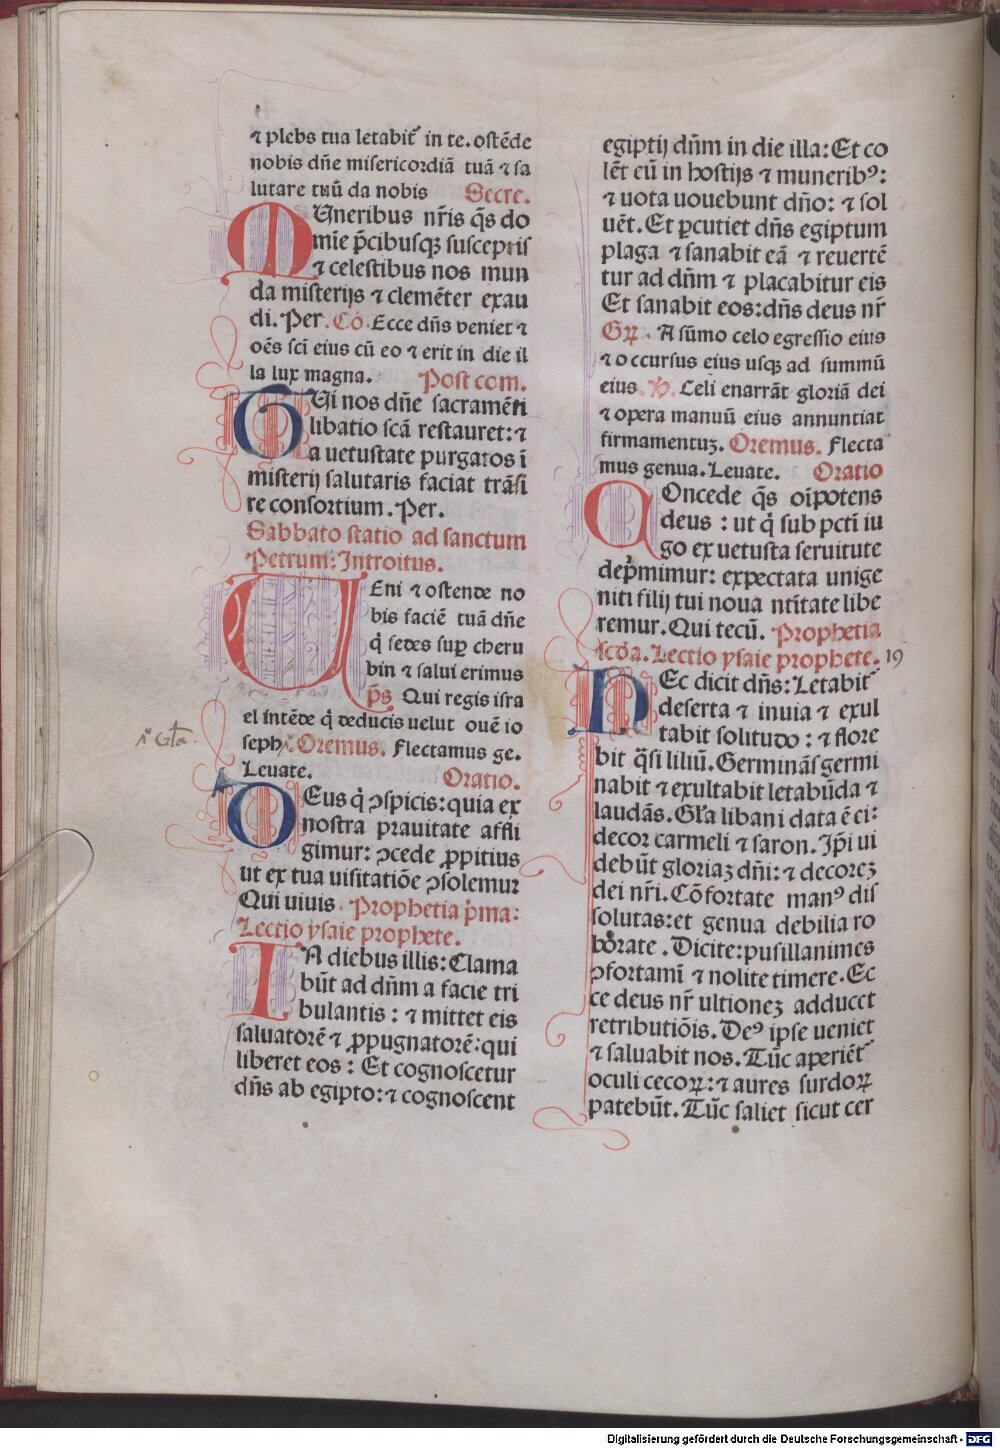 ⁊ plebs tua letabit᷑ in te. ostēde
nobis dn̄e misericordiā tuā ⁊ sa
lutare tuū da nobis Secre.
MUneribus nr̄is q̄s do
mīe p̄cibusqꝫ susceptis
⁊ celestibus nos mun
da misterijs ⁊ clemēter exau
di. Per. Cō. Ecce dn̄s veniet ⁊
oēs sc̄i eius cū eo ⁊ erit in die il
la lux magna. Post com.
TUi nos dn̄e sacramēti
libatio sc̄a restauret: ⁊
a uetustate purgatos ī
misterij salutaris faciat trāsi
re consortium. Per.
Sabbato statio ad sanctum
Petrum: Introitus.
UEni ⁊ ostende no
bis faciē tuā dn̄e
q̇ sedes suꝑ cheru
bin ⁊ salui erimus
p̄s Qui regis isra
el intēde q̇ deducis uelut ouē io
seph ℣ Gl̄a. Oremus. Flectamus ge.
Leuate. Oratio.
DEus q̇ ↄspicis: quia ex
nostra prauitate affli
gimur: ↄcede ꝓpitius
ut ex tua uisitatiōe ↄsolemur
Qui uiuis. Prophetia p̄ma:
Lectio ysaie prophete.
IN diebus illis: Clama
būt ad dn̄m a facie tri
bulantis: ⁊ mittet eis
saluatorē ⁊ ꝓpugnatorē: qui
liberet eos: Et cognoscetur
dn̄s ab egipto: ⁊ cognoscent
egiptij dn̄m in die illa: Et co
lēt eū in hostijs ⁊ muneribꝰ:
⁊ uota uouebunt dn̄o: ⁊ sol
uēt. Et ꝑcutiet dn̄s egiptum
plaga ⁊ sanabit eā ⁊ reuertē
tur ad dn̄m ⁊ placabitur eis
Et sanabit eos: dn̄s deus nr̄
Gꝝ. A sūmo celo egressio eius
⁊ occursus eius usqꝫ ad summū
eius. ℣. Celi enarrāt gloriā dei
⁊ opera manuū eius annuntiat
firmamentuꝫ. Oremus. Flecta
mus genua. Leuate. Oratio
COncede q̄s oīpotens
deus: ut q̇ sub pcti iu
go ex uetusta seruitute
dep̄mimur: expectata unige
niti filij tui noua ntītate libe
remur. Qui tecū. Prophetia
scd̄a. Lectio ysaie prophete. 19
HEc dicit dn̄s: Letabit᷑
deserta ⁊ inuia ⁊ exul
tabit solitudo: ⁊ flore
bit q̄si liliū. Germināſ germi
nabit ⁊ exultabit letabūda ⁊
laudās. Gl̄a libani data ē ei:
decor carmeli ⁊ saron. Ip̄i ui
debūt gloriaꝫ dn̄i: ⁊ decoreꝫ
dei nr̄i. Cōfortate manꝰ dis
solutas: et genua debilia ro
borate. Dicite: pusillanimes
ↄfortamī ⁊ nolite timere. Ec
ce deus nr̄ ultioneꝫ adducet
retributiōis. Deꝰ ipse ueniet
⁊ saluabit nos. Tūc aperiēt᷑
oculi cecoꝝ: ⁊ aures surdoꝝ
patebūt. Tūc saliet sicut cer
Digitalisierung gefördert durch die Deutsche Forschungsgemeinschaft - DFG